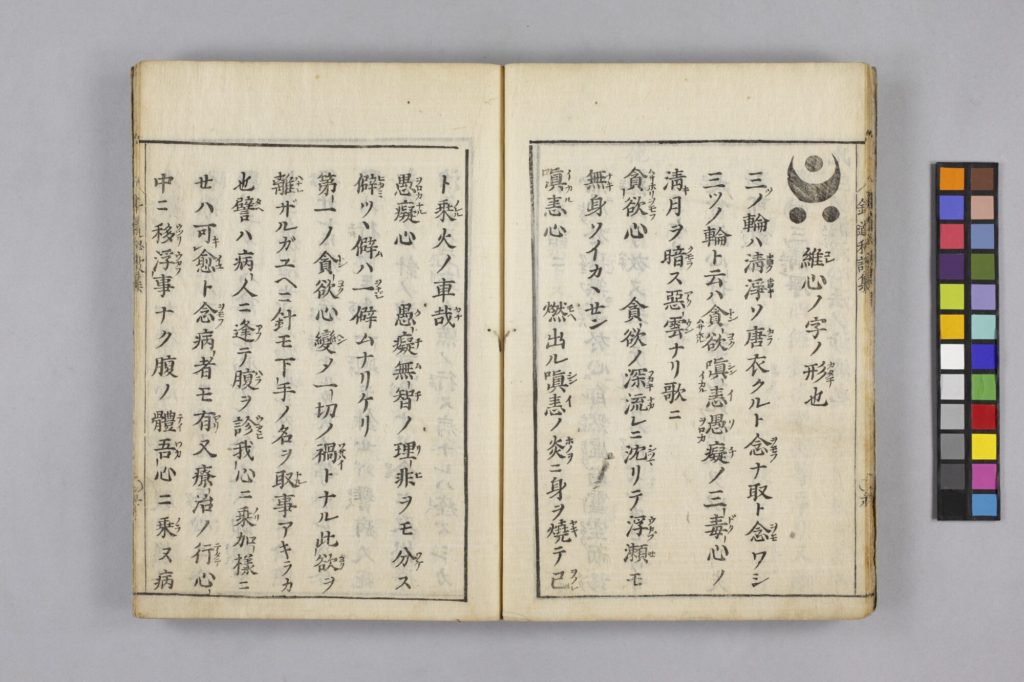 維心ノ字ノ形也
三ノ輪ハ清浄ソ唐衣クルト念ナ取ト念ワシ
三ツノ輪ト云ハ貪欲嗔恚愚癡ノ三毒心ノ
清月ヲ暗ス惡雲ナリ歌ニ
貪欲心　貪欲ノ深流レニ沈リテ浮瀬モ
無身ソイカヽセン
嗔恚心　燃出ル嗔恚ノ炎ニ身ヲ燒テ己
ト乘火ノ車哉
愚癡心　愚癡無智ノ理非ヲモ分ス
僻ツヽ僻ハ一僻ムナリケリ
第一ノ貪欲心變〆一切ノ禍トナル此欲ヲ
離ザルガユヘニ針モ下手ノ名ヲ取事アキラカ
也譬ハ病人ニ逢テ腹ヲ診我心ニ乘加様ニ
せハ可愈ト念病者モ有又療治ノ行心
中ニ移浮事ナク腹ノ體吾心ニ乘ヌ病